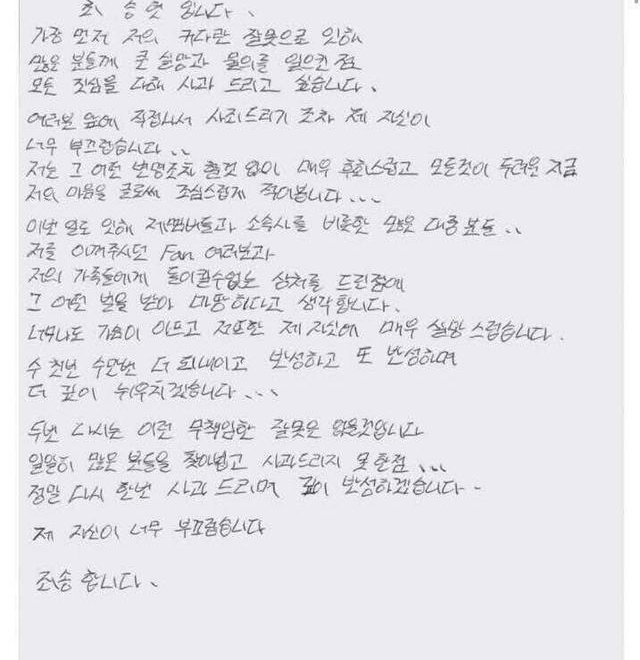 최 승현 입니다.
가장 먼저 저의 커다란 잘못으로 인해
많은 분들께 큰 실망과 물의를 일으킨 점
모든 진심을 다해 사과 드리고 싶습니다.
여러분 앞에 직접나서 사죄드리기 조차 제 자신이
너무 부끄럽습니다..
저는 그 어떤 변명조차 할것 없이 매우 후회스럽고 모든것이 두려운 지금
저의 마음을 글로써 조심스럽게 적어봅니다...
이번 일로 인해 제멤버들과 소속사를 비롯한 많은 대중 분들..
저를 아껴주시던 Fan 여러분과
저의 가족들에게 돌이킬수없는 상처를 드린점에
그 어떤 벌을 받아 마땅하다고 생각합니다.
너무나도 가슴이 아프고 저또한 제 자신에 매우 실망 스럽습니다.
수 천번 수만번 더 되내이고 반성하고 또 반성하며
더 깊이 뉘우치겠습니다...
두번 다시는 이런 무책임한 잘못은 없을것입니다
일일히 많은 분들을 찾아뵙고 사과드리지 못한점...
정말 다시 한번 사과 드리며 깊이 반성하겠습니다.
제 자신이 너무 부끄럽습니다
죄송 합니다.